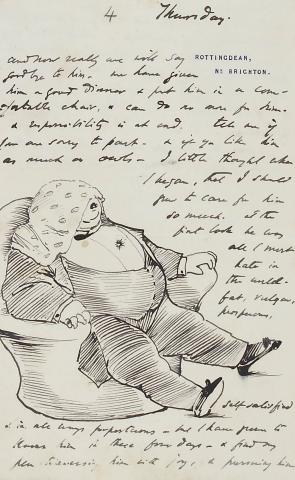 4 Thursday.
ROTTINGDEAN,
Nr. BRIGHTON.
and now really we will say
goodbye to him - we have given
him a good dinner & put him in a com-
fortable chair, & can do no more for him.
& responsibility is at end. tell me if
you are sorry to part - & if you like him
as much as only - I little thought when
I began, that I should
grow to care for him
so much. at the
first look he was
all I most
hate in
the world -
fat, vulgar,
prosperous,
self satisfied
& in all ways preposterous - but I have grown to
know him in these few days - & find my
pen traversing him with joy, & pursuing him